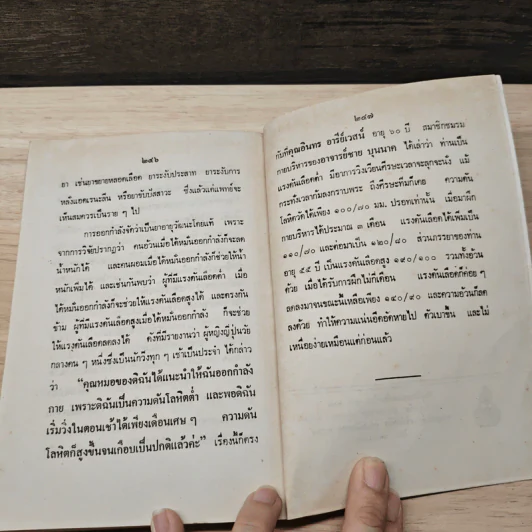 ๒๔๖
ยา เช่นยาขยายหลอดเลือด ยาระงับประสาท ยาระงับการ
หลั่งแอดเรนะลีน หรือยาขับปัสสาวะ ซึ่งแล้วแต่แพทย์จะ
เห็นสมควรเป็นราย ๆ ไป
การออกกำลังจัดว่าเป็นยาอายุวัฒนะโดยแท้ เพราะ
จากการวิจัยปรากฏว่า คนอ้วนเมื่อได้หมั่นออกกำลังก็จะลด
น้ำหนักได้ และคนผอมเมื่อได้หมั่นออกกำลังก็ช่วยให้น้ำ
หนักเพิ่มได้ และเช่นกันพบว่า ผู้ที่มีแรงดันเลือดต่ำ เมื่อ
ได้หมั่นออกกำลังก็จะช่วยให้แรงดันเลือดสูงได้ และตรงกัน
ข้าม ผู้ที่มีแรงดันเลือดสูงเมื่อได้หมั่นออกกำลัง ก็จะช่วย
ให้แรงดันเลือดลดลงได้ ดังที่มีรายงานว่า ผู้หญิงญี่ปุ่นวัย
กลางคน ๆ หนึ่งซึ่งเป็นนักวิ่งทุก ๆ เช้าเป็นประจำ ได้กล่าว
ว่า “คุณหมอของดิฉันได้แนะนำให้ฉันออกกำลัง
กาย เพราะดิฉันเป็นความดันโลหิตต่ำ และพอดิฉัน
เริ่มวิ่งในตอนเช้าได้เพียงเดือนเศษ ๆ ความดัน
โลหิตก็สูงขึ้นจนเกือบเป็นปกติแล้วค่ะ” เรื่องนี้ก็ตรง
๒๔๗
กับที่คุณอินทร อารีย์เวสน์ อายุ ๖๐ ปี สมาชิกชมรม
กายบริหารของอาจารย์ชาย บุนนาค ได้เล่าว่า ท่านเป็น
แรงดันเลือดต่ำ มีอาการวิงเวียนศีรษะเวลาลุกจะนั่ง แม้
กระทั่งเวลาก้มลงกราบพระ ถึงศีรษะทิ่มก็เคย ความดัน
โลหิตวัดได้เพียง ๑๐๐/๗๐ มม. ปรอทเท่านั้น เมื่อมาฝึก
กายบริหารได้ประมาณ ๓ เดือน แรงดันเลือดได้เพิ่มเป็น
๑๑๐/๘๐ และต่อมาเป็น ๑๒๐/๘๐ ส่วนภรรยาของท่าน
อายุ ๕๕ ปี เป็นแรงดันเลือดสูง ๑๙๐/๑๐๐ รวมทั้งอ้วน
ด้วย เมื่อได้รับการฝึกไม่กี่เดือน แรงดันเลือดก็ค่อย ๆ
ลดลงมาจนขณะนี้เหลือเพียง ๑๔๐/๙๐ และความอ้วนก็ลด
ลงด้วย ทำให้ความแน่นอึดอัดหายไป ตัวเบาขึ้น และไม่
เหนื่อยง่ายเหมือนแต่ก่อนแล้ว